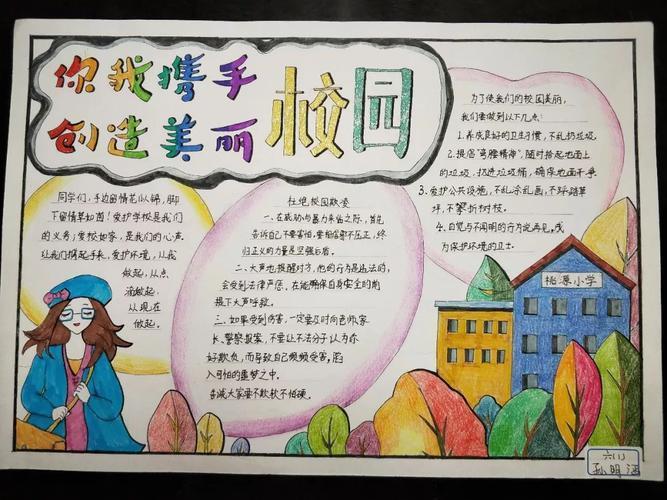 你我携手
创造美丽
校园
同学们，手边留情花似锦，脚
下留情草如茵！爱护学校是我们
的义务；爱校如家，是我们的心声。
让我们携起手来，爱护环境，从我
做起，从点
滴做起，
从现在
做起。
杜绝校园欺凌
一、在威胁与暴力来临之际，首先
告诉自己不要害怕，要相信邪不压正，终
归正义的力量是坚强后盾。
二、大声地提醒对方，他的行为是违法的，
会受到法律严惩，在能确保自身安全的前
提下大声呼救。
三、如果受到伤害，一定要及时向老师家
长、警察报案，不要让不法分子认为你
好欺负，而导致自己频频受害，陷
入可怕的噩梦之中。
告诫大家要不欺软不怕硬。
为了使我们的校园美丽，
我们要做到以下几点：
1.养成良好的卫生习惯，不乱扔垃圾。
2.提倡“弯腰精神”，随时拾起地面上
的垃圾，扔进垃圾桶，确保地面干净
3.爱护公共设施，不乱涂乱画，不踩踏草
坪，不攀折树枝。
4.自觉与不文明的行为说再见，成
为保护环境的卫士。
桃源小学
六(1)
孙明